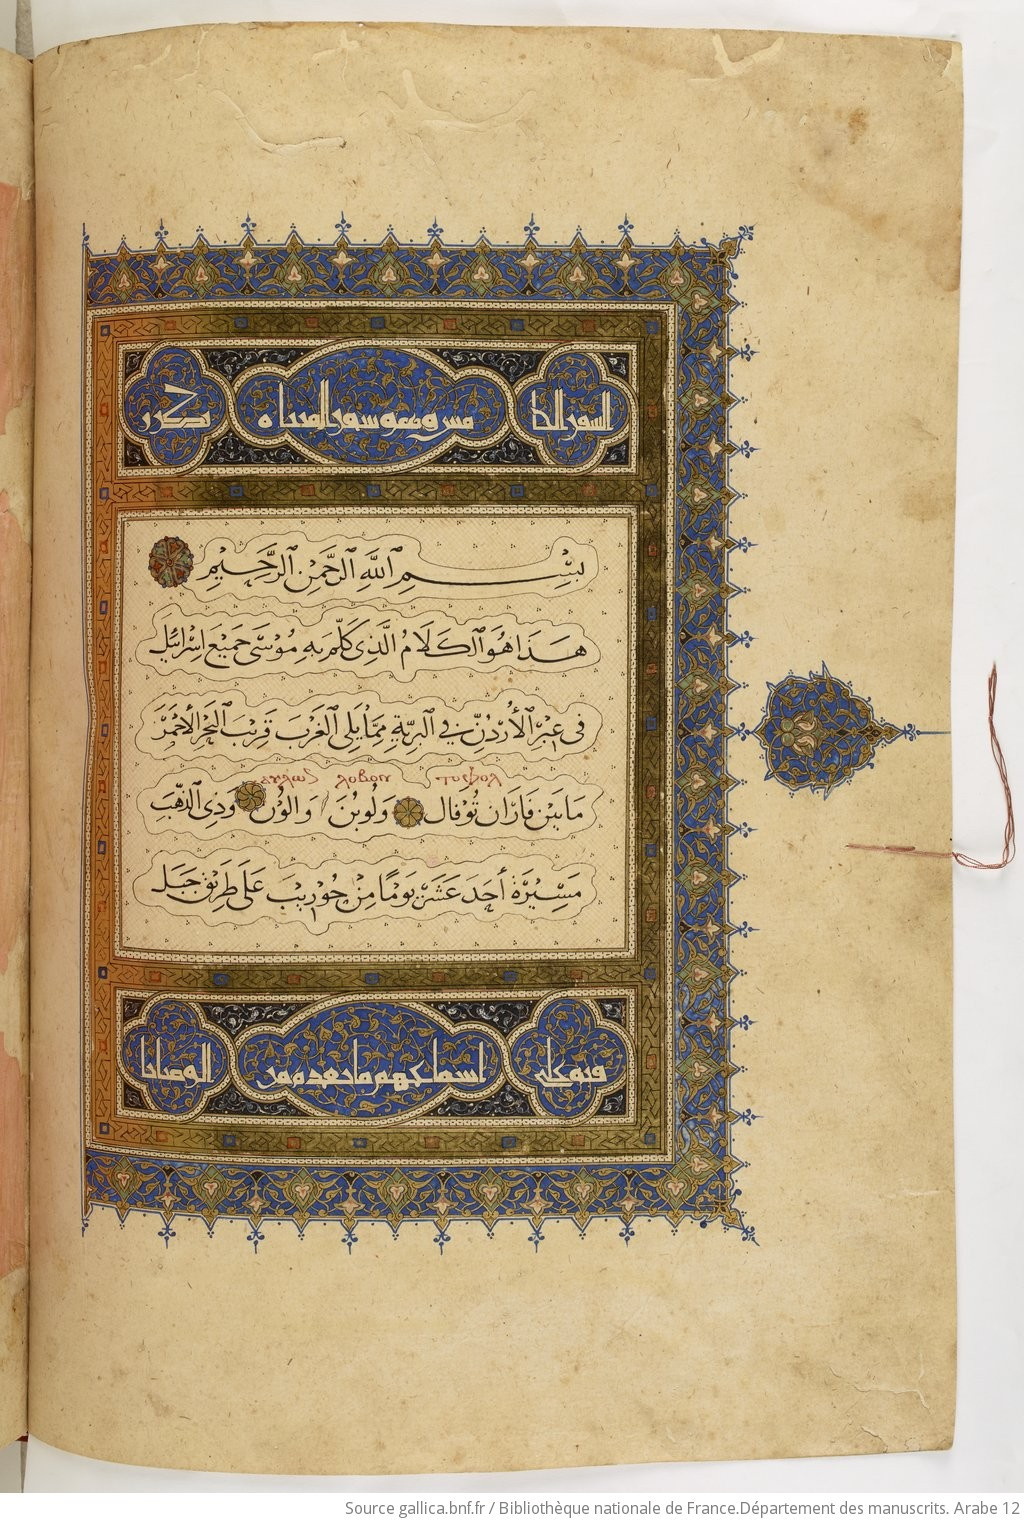 السفر الخا مس وهو سفر المثناه ذكرر
بِسْمِ ٱللَّهِ ٱلرَّحْمَنِ ٱلرَّحِيمِ
هَذَا هُوَ ٱلكَلَامُ الَّذِي كَلَّمَ بِهِ مُوْسَى جَمِيْعَ اِسْرَائِيْلَ
فِي عِبْرِ ٱلأُرْدُنِّ فِي ٱلبَرِّيَّةِ مِمَّا يَلِي الغَرْبَ قَرِيْبَ البَحْرِ الأَحْمَرِ
τοφολ λοβον αυλων
مَا بَيْنَ فَارَانَ تُوْفَال وَلُوبُنَ وَالوُنَ وَذِي الذَّهَبِ
مَسِيْرَةَ أَحَدَ عَشَرَ يَوْمًا مِنْ حُوْرِيْبَ عَلَى طَرِيْقِ جَبَلِ
فيه كل الوصايا
Source gallica.bnf.fr / Bibliothèque nationale de France.Département des manuscrits. Arabe 12